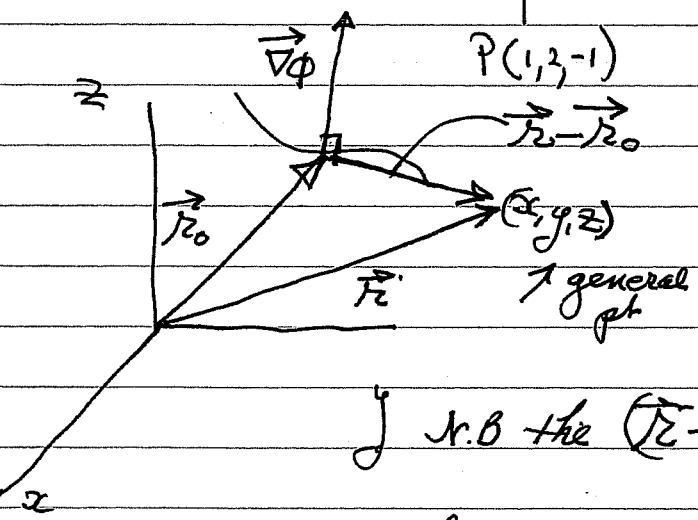 ∇ϕ
P(1,2,-1)
z
r - r₀
r₀
(x,y,z)
r
↑ general
pt
y N.B the (r -
x